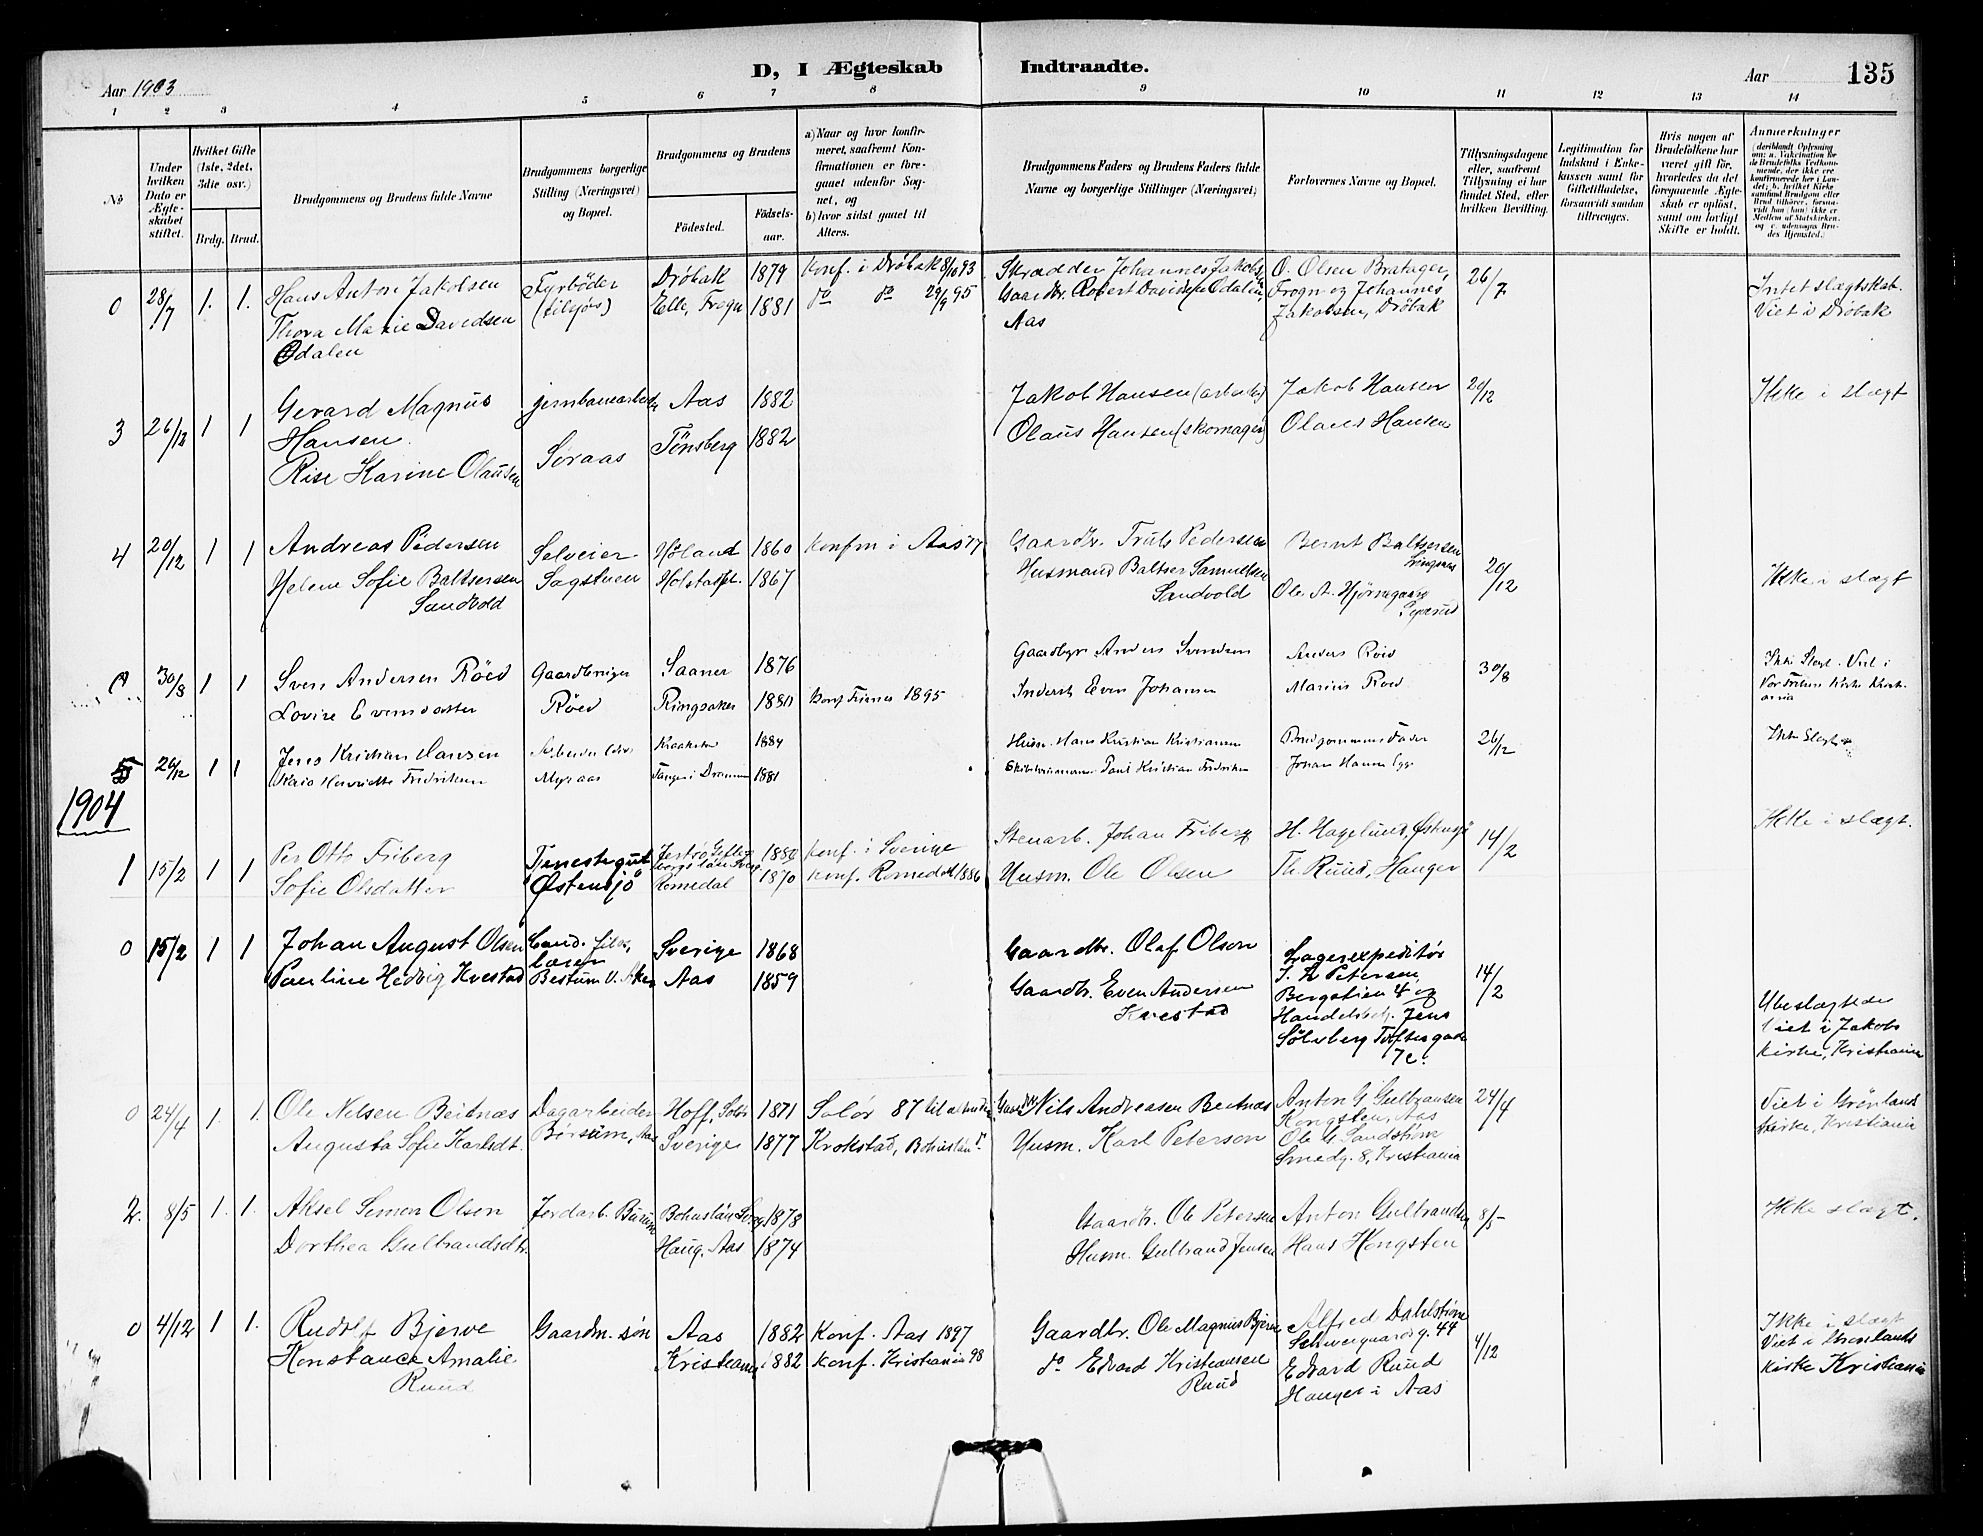 D, I Ægteskab Indtraadte.
Aar 1903
Aar 135
1 2 3 4 5 6 7 8 9 10 11 12 13 14
No
Under hvilken Dato er Ægteskabet stiftet.
Hvilket Gifte (1ste, 2det, 3die osv.)
Brdg. Brud.
Brudgommens og Brudens fulde Navne
Brudgommens borgerlige Stilling (Næringsvei) og Bopæl.
Brudgommens og Brudens
Fødested.
Fødselsaar.
a) Naar og hvor konfirmeret, saafremt Konfirmationen er foregaaet udenfor Sognet, og
b) hvor sidst gaaet til Alters.
Brudgommens Faders og Brudens Faders fulde Navne og borgerlige Stillinger (Næringsvei)
Forlovernes Navne og Bopæl.
Tillysningsdagene eller, saafremt Tillysning ei har fundet Sted, efter hvilken Bevilling.
Legitimation for Indskud i Enkekassen samt for Giftetilladelse, forsaavidt saadan tiltrænges.
Hvis nogen af Brudefolkene har været gift før, hvorledes da det foregaaende Ægteskab er opløst, samt om lovligt Skifte er holdt.
Anmerkninger (deriblandt Oplysning om: a. Vakcination for de Brudefolks Vedkommende, der ikke ere konfirmerede her i Landet; b. hvilket Kirkesamfund Brudgom eller Brud tilhører, forsaavidt han (hun) ikke er Medlem af Statskirken, og c. udensogns Brudes Hjemsted.)
0 28/7 1. 1. Hans Anton Jakobsen Fyrbøder Drøbak 1879 Konf. i Drøbak 8/10 93 Skrædder Johannes Jakobsen O. Olsen Bratager, 26/7 Intet slægtskab.
Thora Marie Davidsen (tilsjøs) Elle, Frogn 1881 do do 29/9 95 Gaardbr. Robert Davidsen Odalen Frogn og Johannes Viet i Drøbak
Odalen Aas Jakobsen, Drøbak
3 26/12 1 1 Gerard Magnus jernbanearbeider Aas 1882 Jakob Hansen (arbeider) Jakob Hansen 20/12 Ikke i slægt
Hansen Tønsberg 1882 Olaus Hansen (skomager) Olaus Hansen
Rise Karine Olausen Søraas
4 20/12 1 1 Andreas Pedersen Selveier Høland 1860 Konfm i Aas 77 Gaardbr. Truls Pedersen Bernt Baltsersen
Helene Sofie Baltsersen Sagstuen 1867 Husmand Baltser Samuelsen 20/12 Ikke i slægt
Sandvold Sandvold Ole A.
30/8 1 1 Sven Andersen Röed Gaardbruger Saaner 1876 Gaardbgr Anders Svendsen Anders Röed 30/8 Ikke Slegt. Viet i
Lovise Evensdatter Röed Ringsaker 1880 1895 Inderst Even Johansen Marius Roed Vor Frelsers Kirke Kristiania
5 26/12 1 1 Jens Kristian Hansen Kraakstad 1884 Husm. Hans Kristian Kristiansen Brudgommens Fader 26/12 Ikke Slegt
Henriette Fredriksen Myraas Tangen i Drammen 1881 Paul Kristian Fredriksen Johan Hansen
1904
1 15/2 1 1 Per Otto Friberg Tjenestegut Konf. i Sverige Stenarb. Johan Friberg H. Hagelund, Østensjø 14/2 Ikke i slægt.
Sofie Olsdatter Østensjø Romedal 1870 Konf. Romedal 1886 Husm. Ole Olsen Th. Ruud, Hauger
0 15/2 1 1 Johan August Olsen Cand. filos, Sverige 1868 Gaardbr. Olaf Olson Lagerexpeditør
Pauline Hedvig Kvestad Bestum V. Aker Aas 1859 Gaardbr. Even Andersen Petersen 14/2
Kvestad Bergstien 4 og
Handelsbetj. Jens Ubeslægtede
Sølvberg Toftesgade Viet i Jakobs
7c. Kirke, Kristiania
0 24/4 1. 1. Ole Nilsen Beitnæs Dagarbeider Hoff, Solør 1871 Solør 87 Nils Andreasen Beitnæs Anton G Gulbransen 24/4 Viet i Grønland
Augusta Sofie Karlsdt. Børsum, Aas Sverige 1877 Krokstad, Bohuslän Husm. Karl Peterson Kongsten, Aas Kirke, Kristiania
Ole G Sandstrøm
Smedg. 8, Kristiania
2. 8/5 1. 1. Aksel Simon Olsen Jordarb. Burum Bohuslän Sverg 1878 Gaardbr. Ole Petersen Anton Gulbrandsen 8/5 Ikke slægt.
Dorthea Gulbrandsdtr. Haug, Aas 1874 Husm. Gulbrand Jensen Hans Kongsten
0 4/12 1 1. Rudolf Bjerve Gaardm. søn Aas 1882 Konf. Aas 1897 Gaardbr. Ole Magnus Bjerve Alfred Dahlstrøm 4/12 Ikke i slægt
Konstance Amalie Kristiania 1882 Konf. Kristiania 98 do Edvard Kristiansen Schweigaardsg. 44 Viet i Grønlands
Ruud Ruud Edvard Ruud Kirke Kristiania
Hauger i Aas